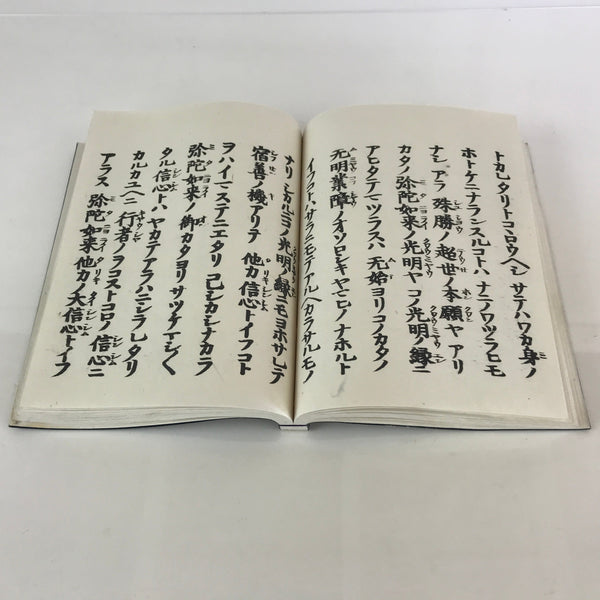 トカレタリトコヽロウヘシ サテハワカ身ノ
ホトケニナランスルコトハ ナニノワツラヒモ
ナシ アラ 殊勝ノ超世ノ本願ヤ アリ
カタノ弥陀如来ノ光明ヤ コノ光明ノ縁ニ
アヒタテマツラスハ 无始ヨリコノカタノ
无明業障ノオソロシキヤマヒノ ナホルト
イフコトハ サラニモテアルヘカラサルモノ
ナリ シカルニコノ光明ノ縁ニモヨホサレテ
宿善ノ機アリテ 他力信心トイフコト
ヲハイマステニエタリ コレシカシナカラ
弥陀如来ノ御カタヨリサツケマシ〱
タル信心トハ ヤカテアラハニシラレタリ
カルカユヘニ 行者ノヲコストコロノ信心ニ
アラス 弥陀如来他力ノ大信心トイフ